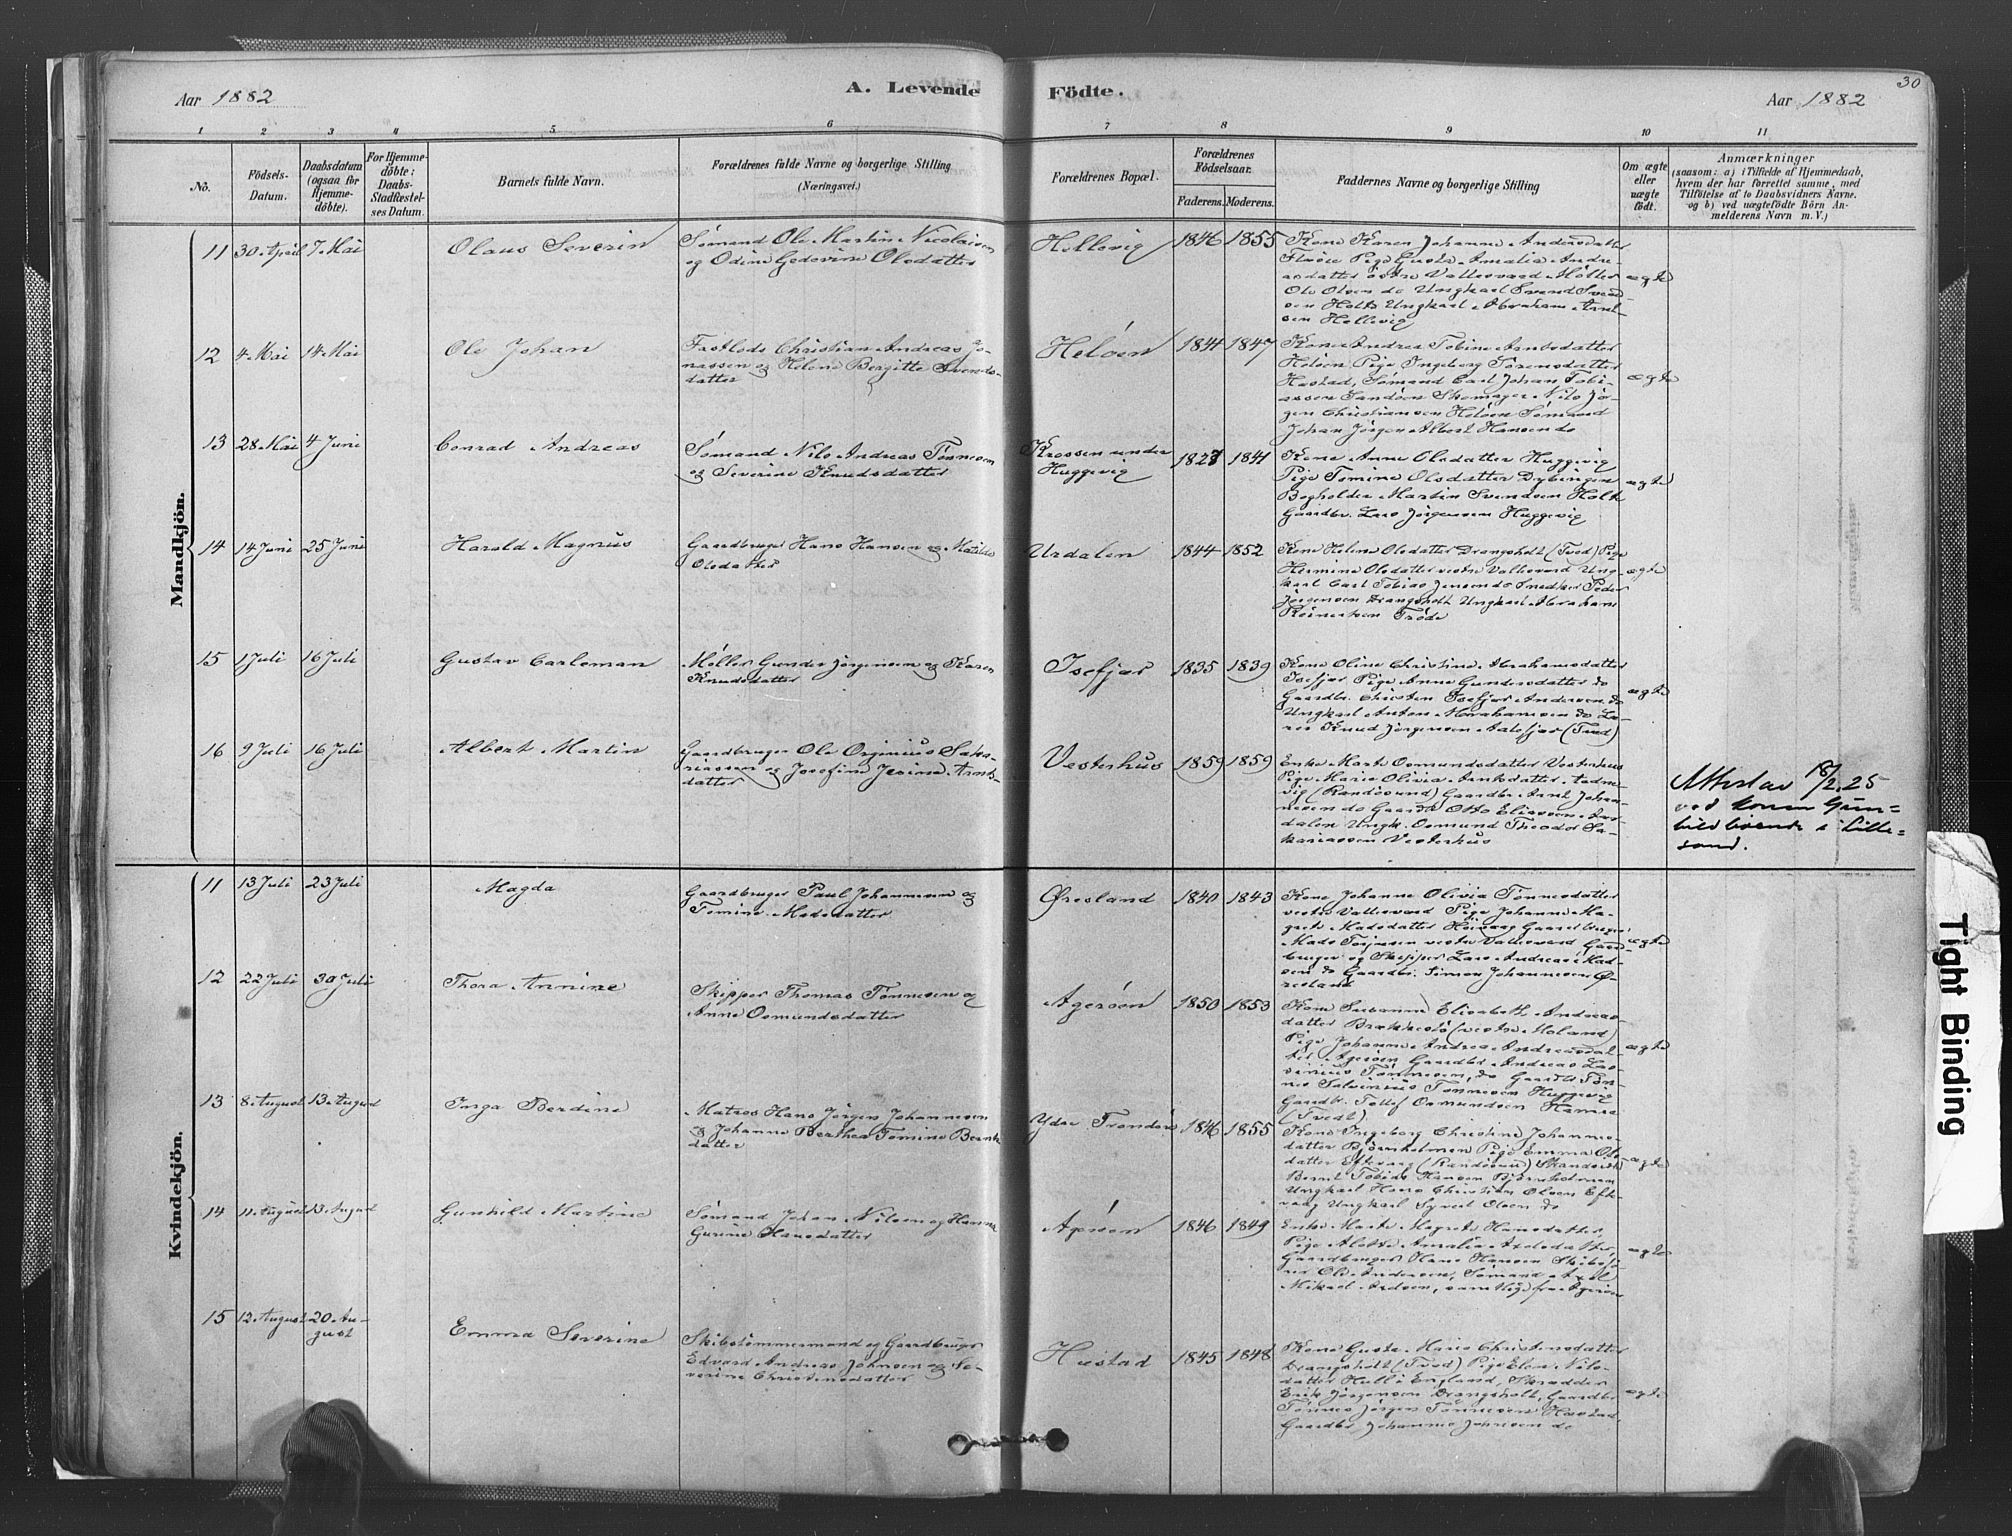 30
Aar 1882
A. Levende Födte.
Aar 1882
1 2 3 4 5 6 7 8 9 10 11
No.
Födsels-Datum.
Daabsdatum (ogsaa for Hjemme-döbte).
For Hjemme-döbte: Daabs-Stadfæstel-ses Datum.
Barnets fulde Navn.
Forældrenes fulde Navne og borgerlige Stilling
(Næringsvei.)
Forældrenes Bopæl.
Forældrenes Födselsaar.
Faderens. Moderens.
Faddernes Navne og borgerlige Stilling
Om ægte eller uægte födt.
Anmærkninger
(saasom: a) i Tilfælde af Hjemmedaab,
hvem der har forrettet samme, med
Tilföielse af to Daabsvidners Navne.
og b) ved uægtefödte Börn An-
melderens Navn m. V.)
Mandkjön.
11 30 April 7 Mai
Olaus Severin
Sømand Ole Martin Nicolaisen
og Odine Gedevine Olsdatter
Hellevig 1846 1855
Kone Karen Johanne Andersdatter
Pige Gusta Amalia Andre-
asdatter østre Vallesværd Møller
Ole Olsen do Ungkarl Svend Svend-
sen Holte Ungkarl Abraham
sen Hellevig
ægte
12 4 Mai 14 Mai
Ole Johan
Christian Andreas Jo-
nassen og Helene Bergitte Svends-
datter
Heløen 1841 1847
Kone Andrea Tobine Arntsdatter
Heløen Pige Ingeborg Sørensdatter
Hæstad, Sømand Carl Johan Tobi-
assen Sandøen Skomager Nils Jør-
gen Christiansen Heløen Sømand
Johan Jørgen Albert Hansen do
ægte
13 28 Mai 4 Juni
Conrad Andreas
Sømand Nils Andreas Tønnesen
og Severine Knudsdatter
Krossen under
Huggevig
1827 1841
Kone Anne Olsdatter Huggevig
Pige Tomine Olsdatter Dybingen
Bogholder Martin Svendsen Holte
Gaardbr. Lars Jørgensen Huggevig
ægte
14 14 Juni 25 Juni
Harald Magnus
Gaardbruger Hans Hansen og Matilde
Olsdatter
Urdalen 1844 1852
Kone Helene Olsdatter Drangsholt (Tved) Pige
Hermine Olsdatter vestre Vallesværd Ung-
karl Carl Tobias Jensen do Snedker Peder
Jørgensen Drangsholt Ungkarl Abraham
Reinertsen Trøde
ægte
15 1 Juli 16 Juli
Gustav Carleman
Møller Gunder Jørgensen og Karen
Knudsdatter
Isefjær 1835 1839
Kone Oline Christine Abrahamsdatter
Isefjær Pige Anne Gundersdatter do
Gaardbr. Christen Isefjær Andersen do
Ungkarl Anton Abrahamsen do Læ-
rer Knud Jørgensen Aalefjær (Tved)
ægte
16 9 Juli 16 Juli
Albert Martin
Gaardbruger Ole Orginius Saka-
riassen og Josefine Jesine Arnts-
datter
Vesterhus 1859 1859
Enke Marte Osmundsdatter Vesterhus
Pige Marie Olivia Arntsdatter
vig (Randøsund) Gaardbr. Arnt Johan-
nesen do Gaardbr Otto Eliassen
dalen Ungk. Osmund Theodor Sa-
kariassen Vesterhus
Attestav 18/2 25
ved konen Gun-
hild boende i Lille-
sand.
Kvindekjön.
11 13 Juli 23 Juli
Magda
Gaardbruger Paul Johannesen og
Tomine Madsdatter
Øresland 1840 1843
Kone Johanne Olivia Tønnesdatter
vestre Vallesværd Pige Johanne Ma-
grete Madsdatter Gaardbruger
Mads Terjesen vestre Vallesværd Gaard-
bruger og Skipper Lars Andreas Mad-
sen do Gaardbr. Simon Johannesen Ø-
resland
ægte
12 22 Juli 30 Juli
Thora Annine
Skipper Thomas Tønnesen og
Anne Osmundsdatter
Agerøen 1850 1853
Kone Susanne Elisabeth Andreas-
datter Brækkestø (vestre Moland)
Pige Johanne Andrea Andreasdat-
ter Agerøen Gaardbr Andreas
Tønnesen, do Gaardbr Tøn-
nes Tønnesen Huggevig
Gaardbr. Tollef Osmundsen
(Tvedt)
ægte
13 8 August 13 August
Inga Berdine
Matros Hans Jørgen Johannesen
og Johanne Berthea Tomine Bernts-
datter
Ydre 1846 1855
Kone Ingeborg Christine Johannes-
datter Bjørnholmen Pige Emma Ols-
datter Eftevaag (Randøsund)
Bernt Tobias Hansen Bjørnholmen
Ungkarl Hans Christian Olsen Efte-
vaag Ungkarl Syvert Olsen do
ægte
14 11 August 13 August
Gunhild Martine
Sømand Johan Nilsen og Hanne
Gurine Hansdatter
Agerøen 1846 1849
Enke Marte Magrete Hansdatter,
Pige Alette Amalia Axelsdatter,
Gaardbruger Hans Hansen
Ole Andersen, Sømand Axel
Mikael Axelsen, samtlige fra Agerøen
ægte
15 12 August 20 Au-
gust
Emma Severine
Skibstømmermand og Gaardbruger
Edvard Andreas Johnsen og Se-
verine Christensdatter
Hæstad 1845 1848
Kone Gusta Marie Christensdatter
Drangsholt (Tved) Pige Elen Nils-
datter Hull i England, Skrædder
Erik Jørgensen Drangsholt, Gaardbr
Tønnes Jørgen Tønnesen Hæstad
Gaardbr. Johannes Johnsen do
ægte
Tight Binding